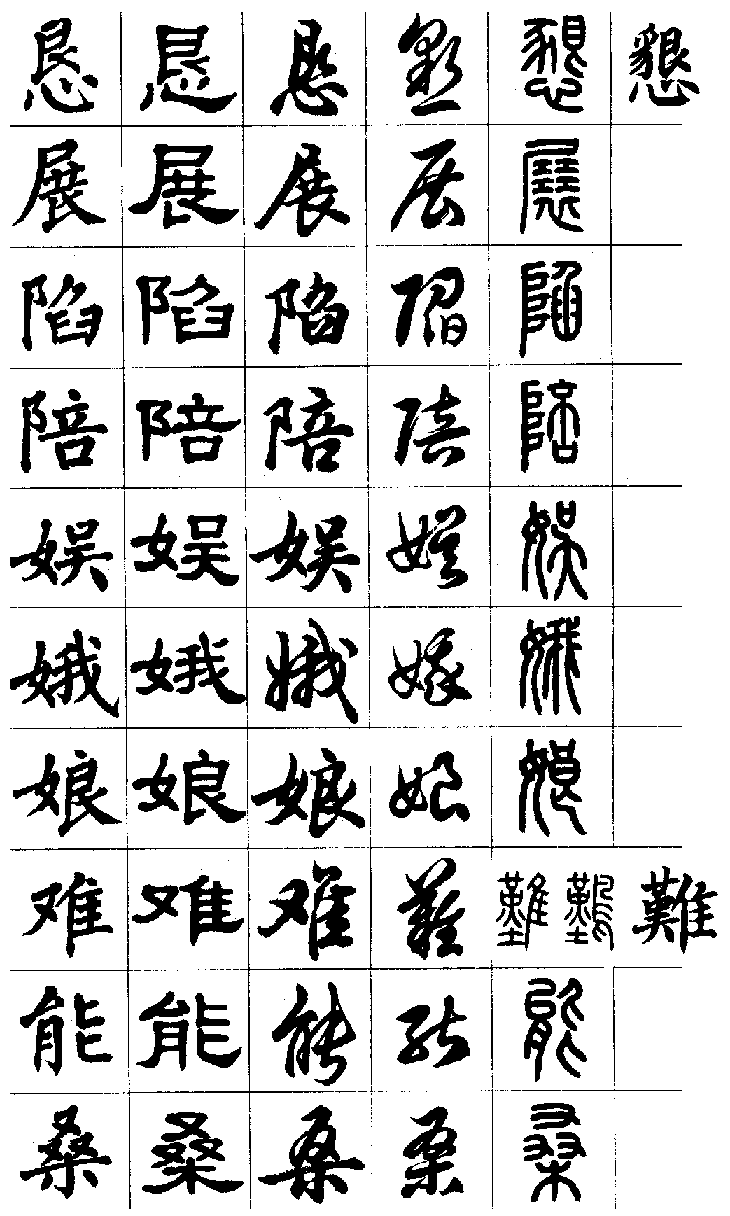 恳 恳 恳 懇 懇 懇
展 展 展 展 展
陷 陷 陷 陷 陷
陪 陪 陪 陪 陪
娱 娱 娱 娱 娱
娥 娥 娥 娥 娥
娘 娘 娘 娘 娘
难 难 难 難 難 難 難
能 能 能 能 能
桑 桑 桑 桑 桑